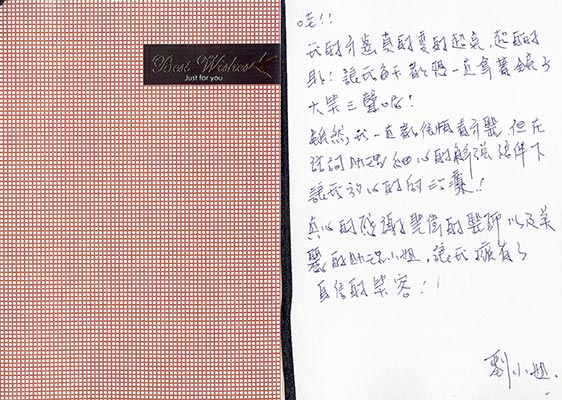 Best Wishes
Just for you
哇!!
我的牙齒真的變的超亮,超酷的
耶!讓我每天都想一直拿著鏡子
大笑三聲哈!
雖然,我一直都很怕看牙醫,但在
諮詢助理細心的解說條件下
讓我放心的治療!!
真心的感謝豐偉的醫師以及美
麗的助理小姐,讓我擁有了
自信的笑容!!
劉小姐.